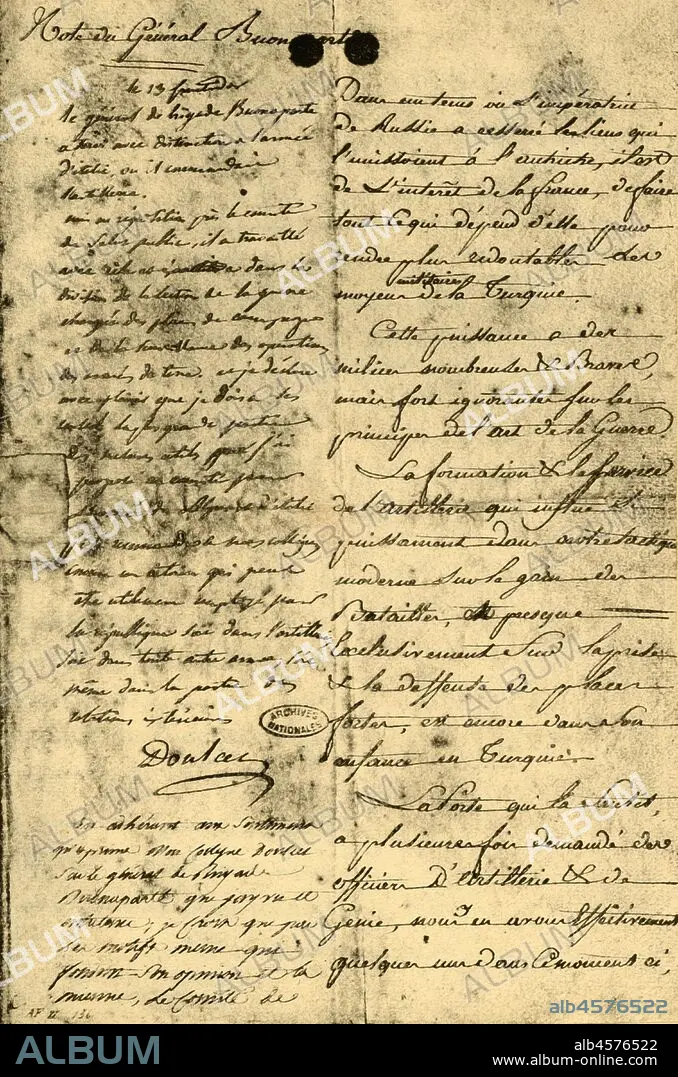 Note du Général Buonaparte
le 13 fructidor
le général de brigade Buonaparte
a servi avec distinction a l'armée
d'italie, ou il commandait
l'artillerie.
mis en réquisition près le comité
de Salut public, il a travaillé
avec zèle et dans la
division de la section de la guerre
chargée des plans de campagne
et de la surveillance des operations
des armées de terre, et je déclare
avec plaisir que je dois à ses
conseils la plus grande partie
des mesures utiles que j'ai
proposé au comité pour
l'armée des Alpes et d'italie
je le recommande à mes collègues
comme un citoyen qui peut
être utilement employé pour
la république soit dans l'artillerie
soit dans toute autre arme soit
même dans la partie des
relations extérieures
Doulcet
ARCHIVES NATIONALES
En adhérant aux Sentimens
qu'exprime Mon Collegue Doulcet
Sur le général de Brigade
Buonaparté que j'ay vu et
entretenu, je Crois que par
les motifs mème qui
fondent Son opinion et la
mienne, Le Comité de
AF II 136
Dans un tems où L'impératrice
de Russie a resserré les liens qui
l'unissoient à l'autriche, il est
de L'interêt de la france, de faire
tout Ce qui dépend d'elle pour
rendre plus redoutables les
moyens militaires de la Turquie.
Cette puissance a des
milices nombreuses & Braves,
mais fort ignorantes sur les
principes de l'art de la Guerre.
La formation & le Service
de l'artillerie qui influe si
puissamment dans notre tactique
moderne sur le gain des
Batailles, & presque
Exclusivement Sur la prise
& la deffense des places
fortes, est encore dans son
enfance en Turquie.
La Porte qui l'a Senti,
a plusieurs fois demandé des
officiers D'artillerie & de
Génie, nous y en avons Effectivement
quelques uns dans Ce moment ci,
alb4576522
ALBUM
alb4576522
www.album-online.com